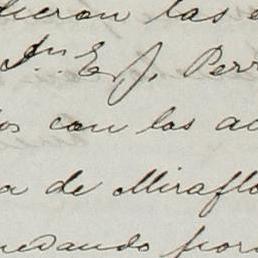 ieron las e
Jn. E. J. Perr
os con los ac
a de Miraflo
uedando por